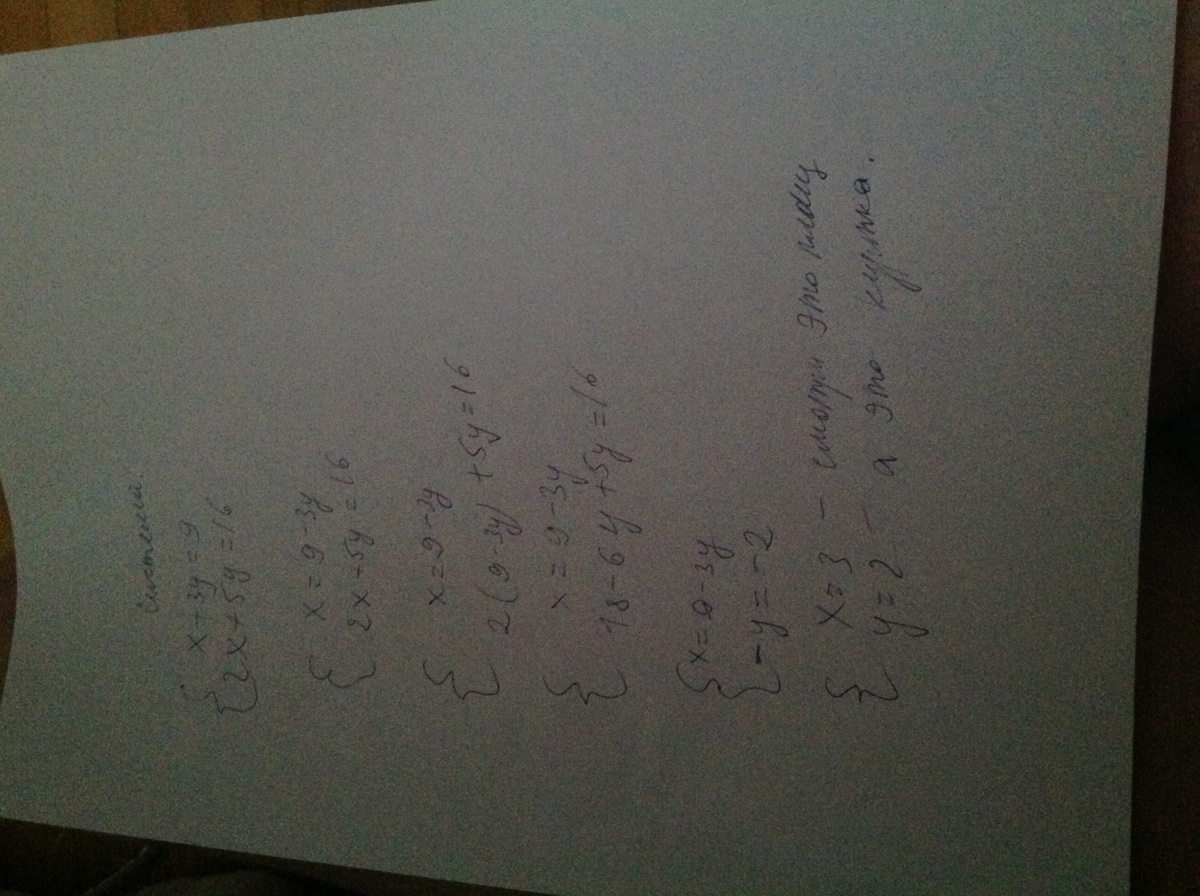 система:
{ x+3y=9
2x+5y=16
{ x=9-3y
2x+5y=16
{ x=9-3y
2(9-3y)+5y=16
{ x=9-3y
18-6y+5y=16
{ x=9-3y
-y=-2
{ x=3 - смотри это плащ
y=2 - а это куртка.